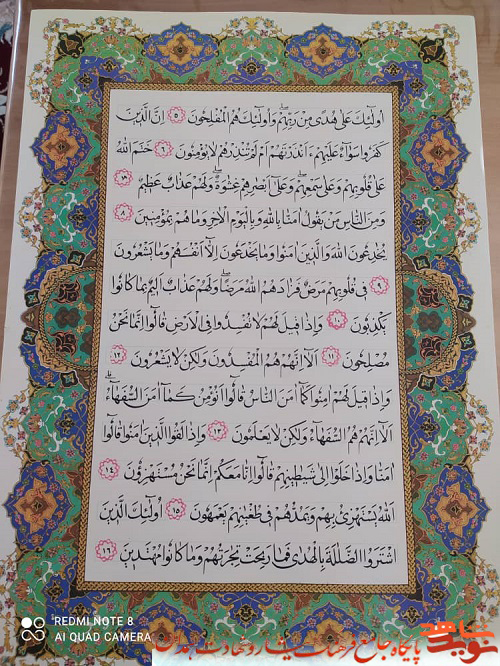 اُولٰٓئِكَ عَلٰى هُدًى مِنْ رَبِّهِمْ وَاُولٰٓئِكَ هُمُ الْمُفْلِحُونَ ٥ اِنَّ الَّذِينَ
كَفَرُوا سَوَآءٌ عَلَيْهِمْ ءَاَنْذَرْتَهُمْ اَمْ لَمْ تُنْذِرْهُمْ لَا يُؤْمِنُونَ ٦ خَتَمَ اللّٰهُ
عَلٰى قُلُوبِهِمْ وَعَلٰى سَمْعِهِمْ وَعَلٰٓى اَبْصٰرِهِمْ غِشٰوَةٌ وَلَهُمْ عَذَابٌ عَظِيمٌ
وَمِنَ النَّاسِ مَنْ يَقُولُ اٰمَنَّا بِاللّٰهِ وَبِالْيَوْمِ الْاٰخِرِ وَمَا هُمْ بِمُؤْمِنِينَ ٨
يُخٰدِعُونَ اللّٰهَ وَالَّذِينَ اٰمَنُوا وَمَا يَخْدَعُونَ اِلَّآ اَنْفُسَهُمْ وَمَا يَشْعُرُونَ
٩ فِى قُلُوبِهِمْ مَرَضٌ فَزَادَهُمُ اللّٰهُ مَرَضًا وَلَهُمْ عَذَابٌ اَلِيمٌ بِمَا كَانُوا
يَكْذِبُونَ ١٠ وَاِذَا قِيلَ لَهُمْ لَا تُفْسِدُوا فِى الْاَرْضِ قَالُوٓا اِنَّمَا نَحْنُ
مُصْلِحُونَ ١١ اَلَآ اِنَّهُمْ هُمُ الْمُفْسِدُونَ وَلٰكِنْ لَا يَشْعُرُونَ ١٢
وَاِذَا قِيلَ لَهُمْ اٰمِنُوا كَمَآ اٰمَنَ النَّاسُ قَالُوٓا اَنُؤْمِنُ كَمَآ اٰمَنَ السُّفَهَآءُ
اَلَآ اِنَّهُمْ هُمُ السُّفَهَآءُ وَلٰكِنْ لَا يَعْلَمُونَ ١٣ وَاِذَا لَقُوا الَّذِينَ اٰمَنُوا قَالُوٓا
اٰمَنَّا وَاِذَا خَلَوْا اِلٰى شَيٰطِينِهِمْ قَالُوٓا اِنَّا مَعَكُمْ اِنَّمَا نَحْنُ مُسْتَهْزِءُونَ ١٤
اَللّٰهُ يَسْتَهْزِئُ بِهِمْ وَيَمُدُّهُمْ فِى طُغْيٰنِهِمْ يَعْمَهُونَ ١٥ اُولٰٓئِكَ الَّذِينَ
اشْتَرَوُا الضَّلٰلَةَ بِالْهُدٰى فَمَا رَبِحَتْ تِجٰرَتُهُمْ وَمَا كَانُوا مُهْتَدِينَ ١٦
REDMI NOTE 8
AI QUAD CAMERA
پایگاه جامع فرهنگ ایثار و شهادت